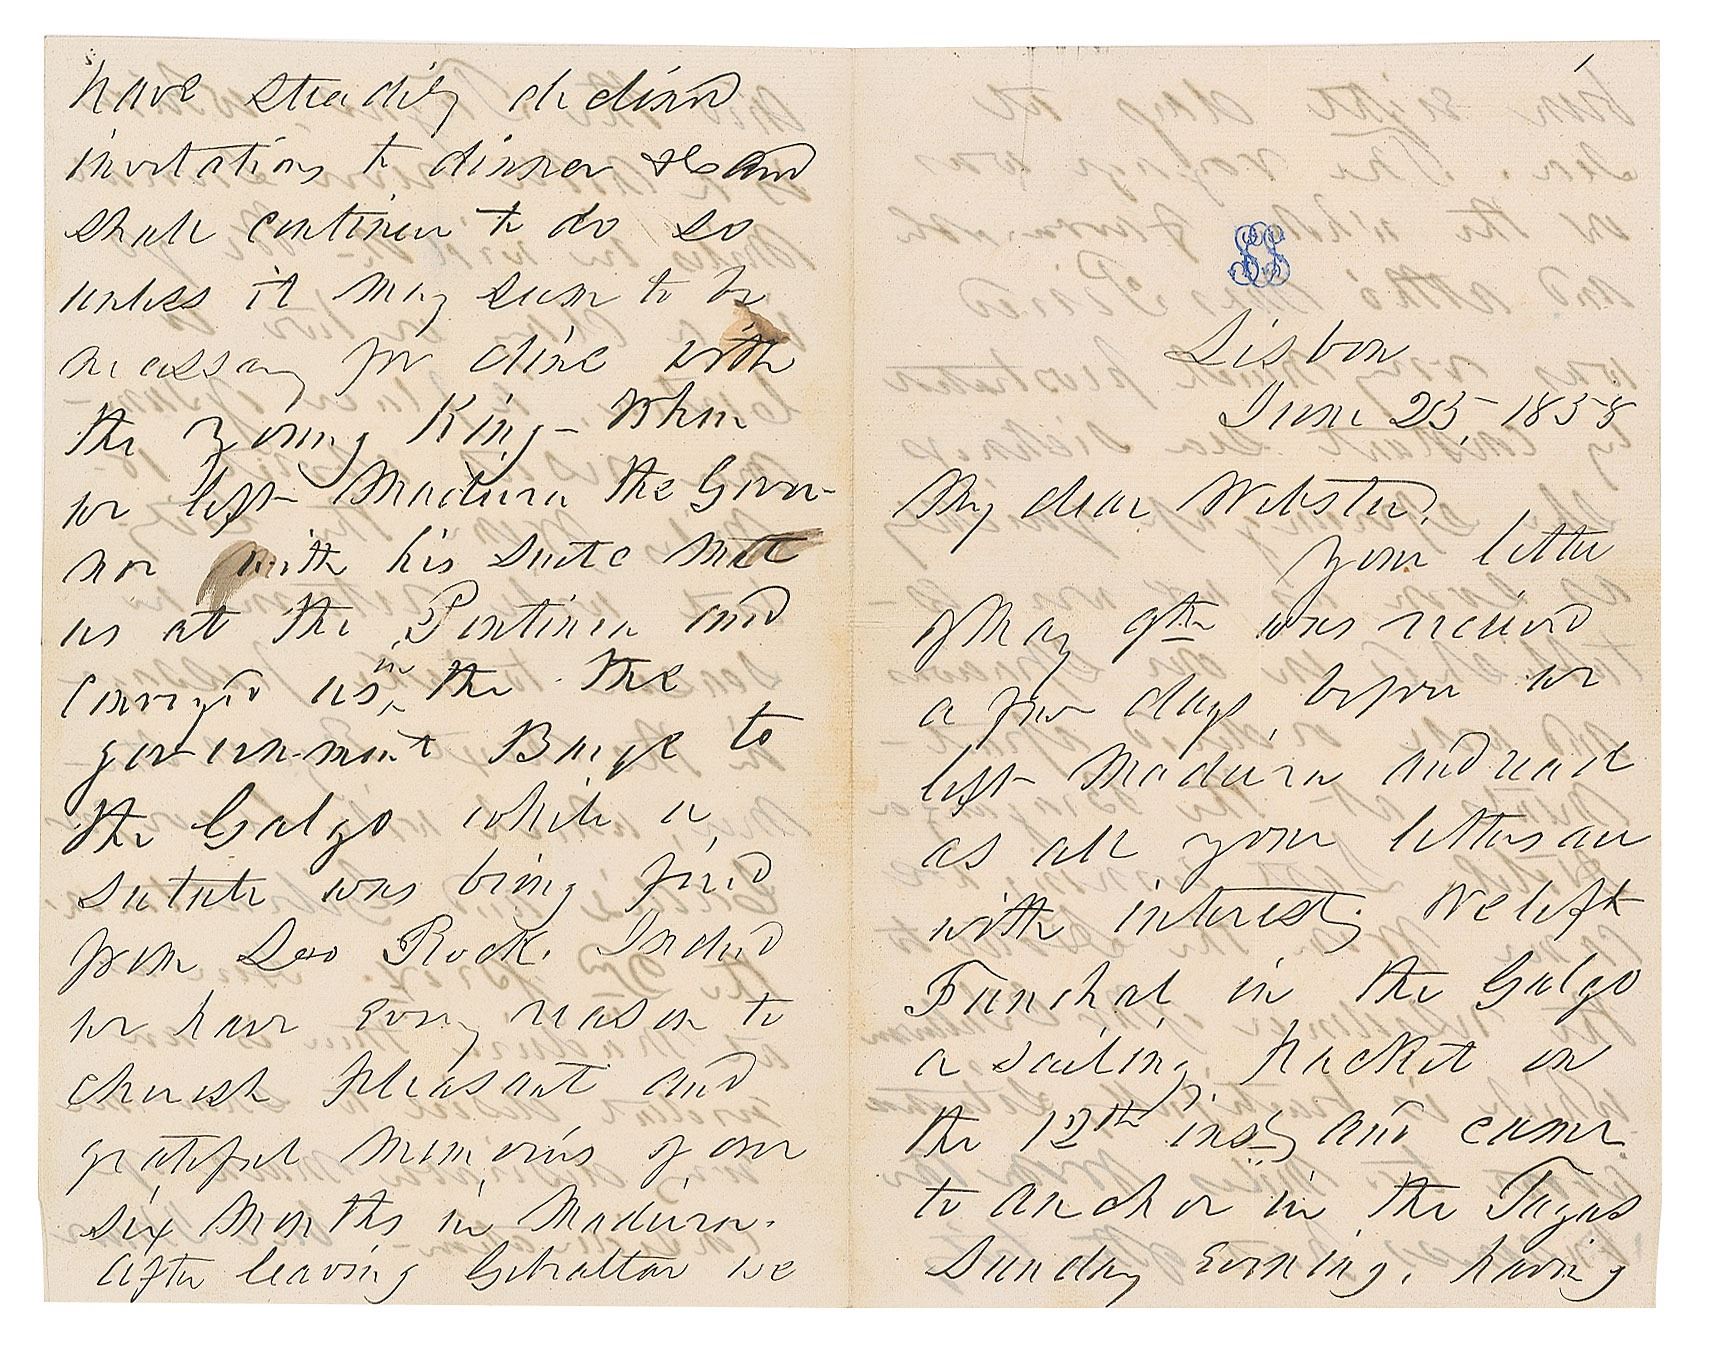 1
Lisbon
June 25, 1858
My dear Webster:
Your letter
of May 9th was received
a few days before we
left Madeira and read
as all your letters are
with interest. We left
Funchal in the Galgo
a sailing packet on
the 12th inst, and came
to anchor in the Tagus
Sunday Evening, having
have steadily declined
invitations to dinner &c and
shall continue to do so
unless it may seem to be
necessary for dine with
the young King – When
we left Madeira the Gover-
nor with his suite met
us at the Pontinea and
conveyed us in the the
government Barge to
the Galgo while a
salute was being fired
from Loo Rock. Indeed
we have every reason to
cherish pleasant and
grateful memories of our
six months in Madeira.
After leaving Gibraltar we